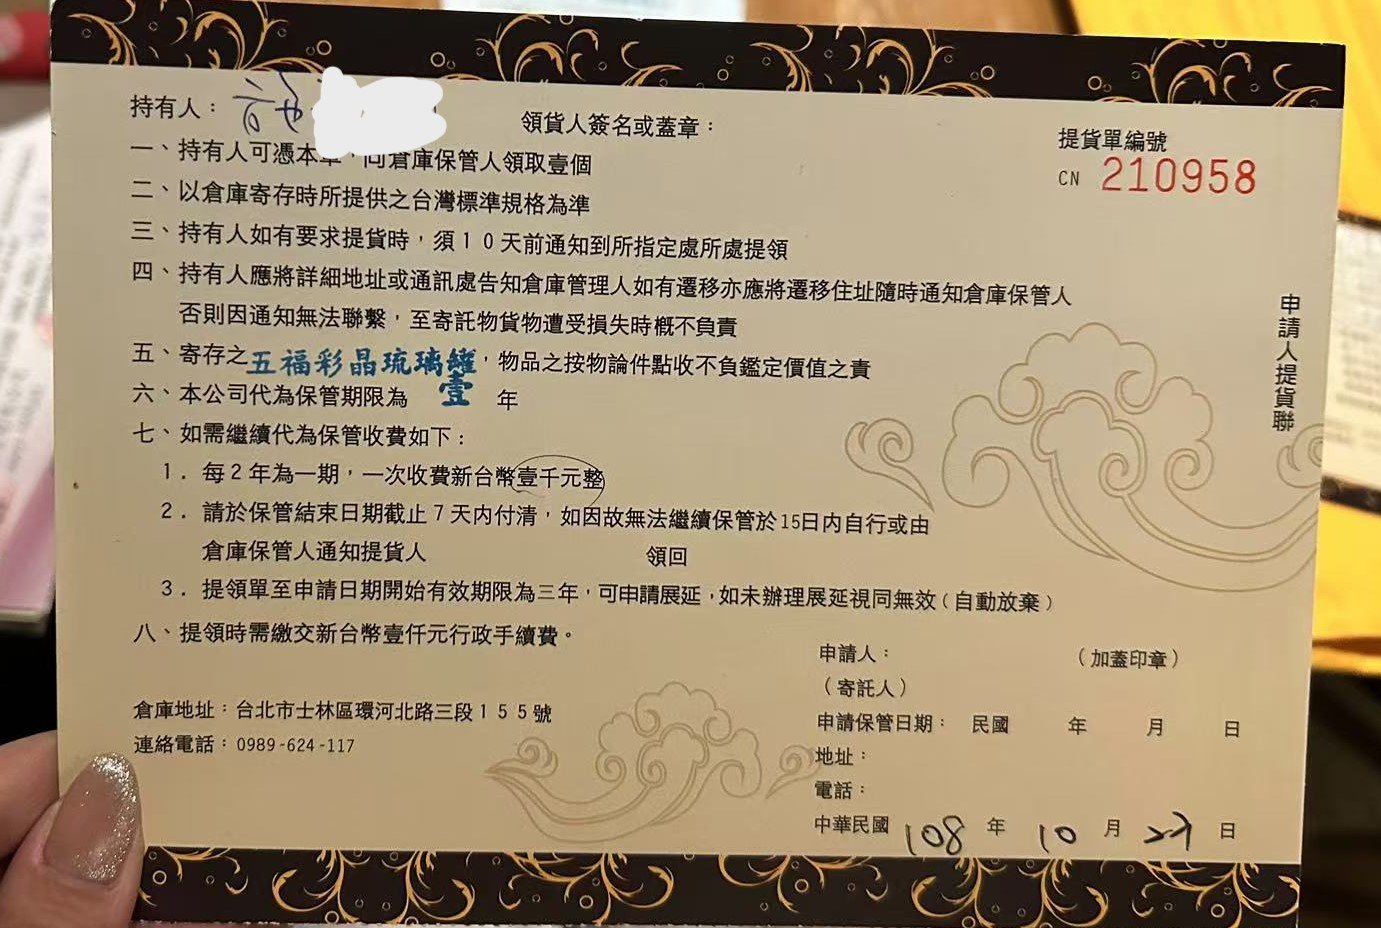 持有人：許
領貨人簽名或蓋章：
提貨單編號
CN 210958
一、持有人可憑本單，向倉庫保管人領取壹個
二、以倉庫寄存時所提供之台灣標準規格為準
三、持有人如有要求提貨時，須１０天前通知到所指定處所處提領
四、持有人應將詳細地址或通訊處告知倉庫管理人如有遷移亦應將遷移住址隨時通知倉庫保管人
否則因通知無法聯繫，至寄託物貨物遭受損失時概不負責
五、寄存之五福彩晶琉璃罐，物品之按物論件點收不負鑑定價值之責
六、本公司代為保管期限為 壹 年
七、如需繼續代為保管收費如下：
1．每２年為一期，一次收費新台幣壹千元整
2．請於保管結束日期截止７天內付清，如因故無法繼續保管於15日內自行或由
倉庫保管人通知提貨人 領回
3．提領單至申請日期開始有效期限為三年，可申請展延，如未辦理展延視同無效（自動放棄）
八、提領時需繳交新台幣壹仟元行政手續費。
倉庫地址：台北市士林區環河北路三段１５５號
連絡電話：0989-624-117
申請人： （加蓋印章）
（寄託人）
申請保管日期： 民國 年 月 日
地址：
電話：
中華民國 108 年 10 月 日
申請人提貨聯